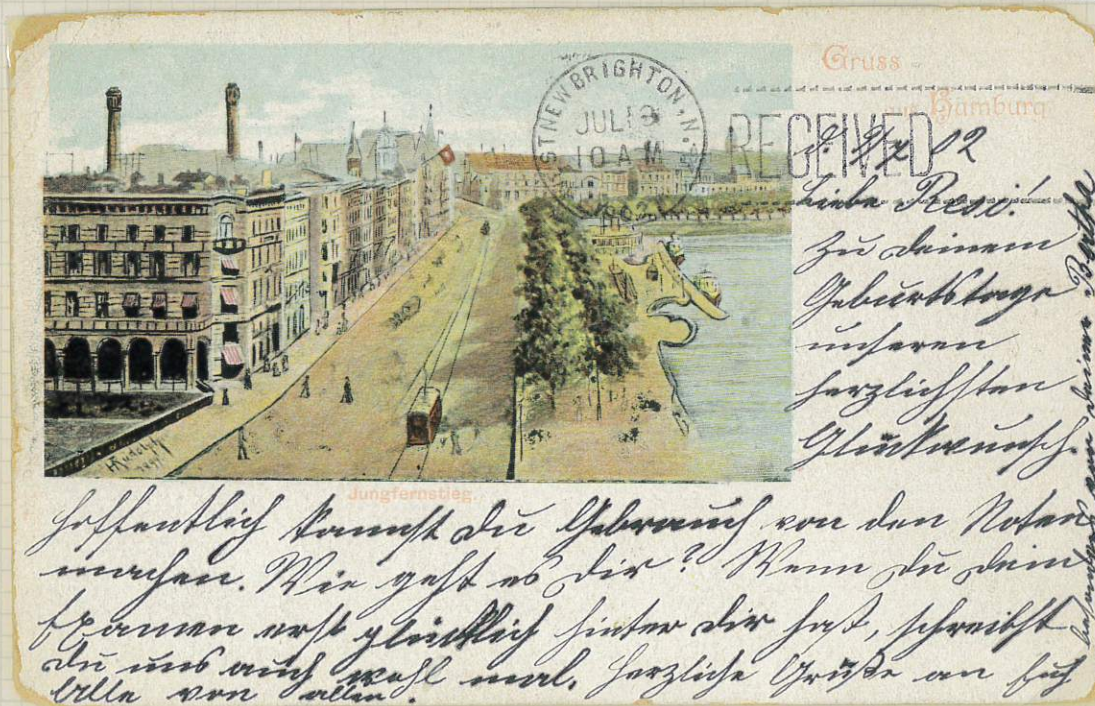 Gruss
aus Hamburg
WEST NEW BRIGHTON, N.
JUL 13
10 AM
RECEIVED
02
Liebe Resi!
Zu Deinem
Geburtstage
unseren
herzlichsten
Glückwunsch.
Jungfernstieg.
Hoffentlich kannst Du Gebrauch von den Noten
machen. Wie geht es Dir? Wenn Du Dein
Examen erst glücklich hinter Dir hast, schreibst
Du uns auch wohl mal. Herzliche Grüße an Euch
Alle von allen.
besonders von Deiner Bertha